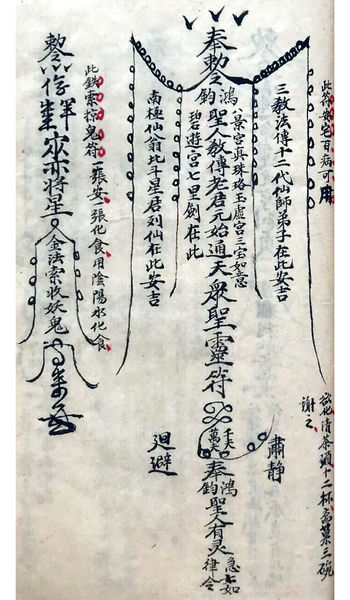 此符安宅百病可用
奉敕
三教法傳十二代仙師弟子在此安吉
景宮真珠珞玉虛宮三宝如意
鴻鈞聖人教傳老君元始通天眾聖靈符
碧遊宮七里劍在此
南極仙翁北斗星君列仙在此安吉
肅靜
迴避
奉鴻鈞聖人有灵
急急如律令
欲化清茶頭十二杯高菓三碗
謝之
此鉄索捺鬼符一張安一張化食用陰陽水化食
敕
將星
金法索收妖鬼